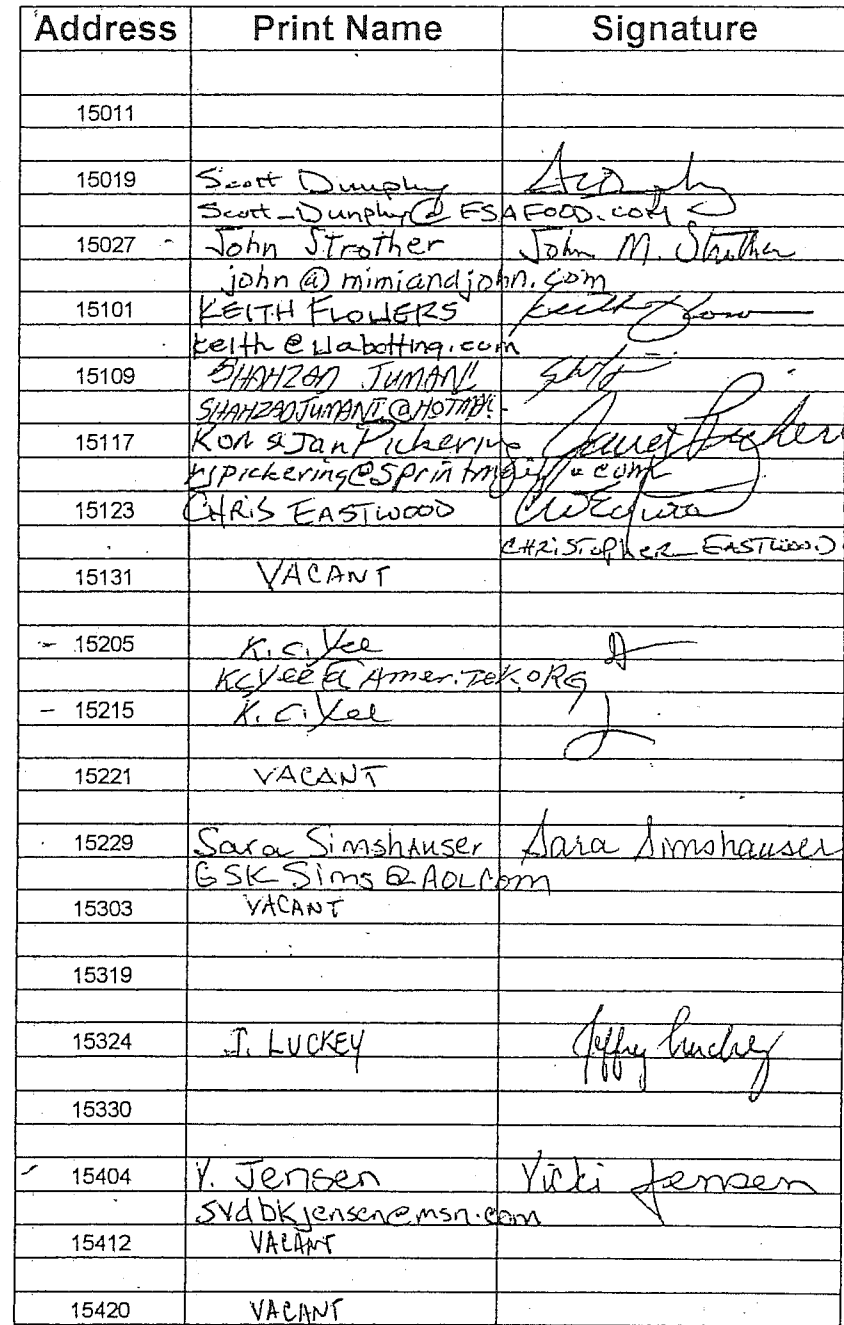 Address Print Name Signature
15011
15019 Scott Dunphy
Scott_Dunphy@ESAFOOD.COM
15027 John Strother John M. Strother
john@mimiandjohn.com
15101 KEITH FLOWERS
keith@ilabotting.com
15109 SHAHZAD JUMANI
SHAHZADJUMANI@HOTMAIL
15117 Ron & Jan Pickering Janet Pickeri
rjpickering@sprintmail.com
15123 CHRIS EASTWOOD
CHRISTOPHER EASTWOOD
15131 VACANT
15205 K.C. Yee
KCYee@AmeriTek.ORG
15215 K.C. Yee
15221 VACANT
15229 Sara Simshauser Sara Simshauser
GSKSims@AOL.com
15303 VACANT
15319
15324 J. LUCKEY Jeffry Luckey
15330
15404 V. Jensen Vicki Jensen
svdbkjensen@msn.com
15412 VACANT
15420 VACANT